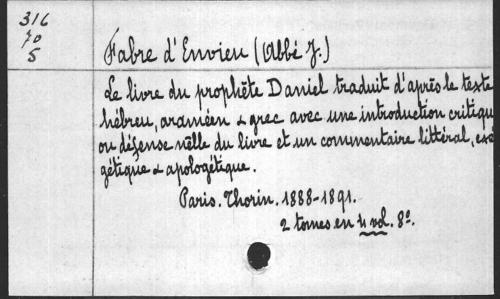 316
70
5
Fabre d'Envieu (Abbé J.)
Le livre du prophète Daniel traduit d'après le texte
hébreu, araméen & grec avec une introduction critique
ou défense nelle du livre et un commentaire littéral, exé
gétique & apologétique.
Paris. Thorin. 1888-1891.
2 tomes en 4 vol. 8º.